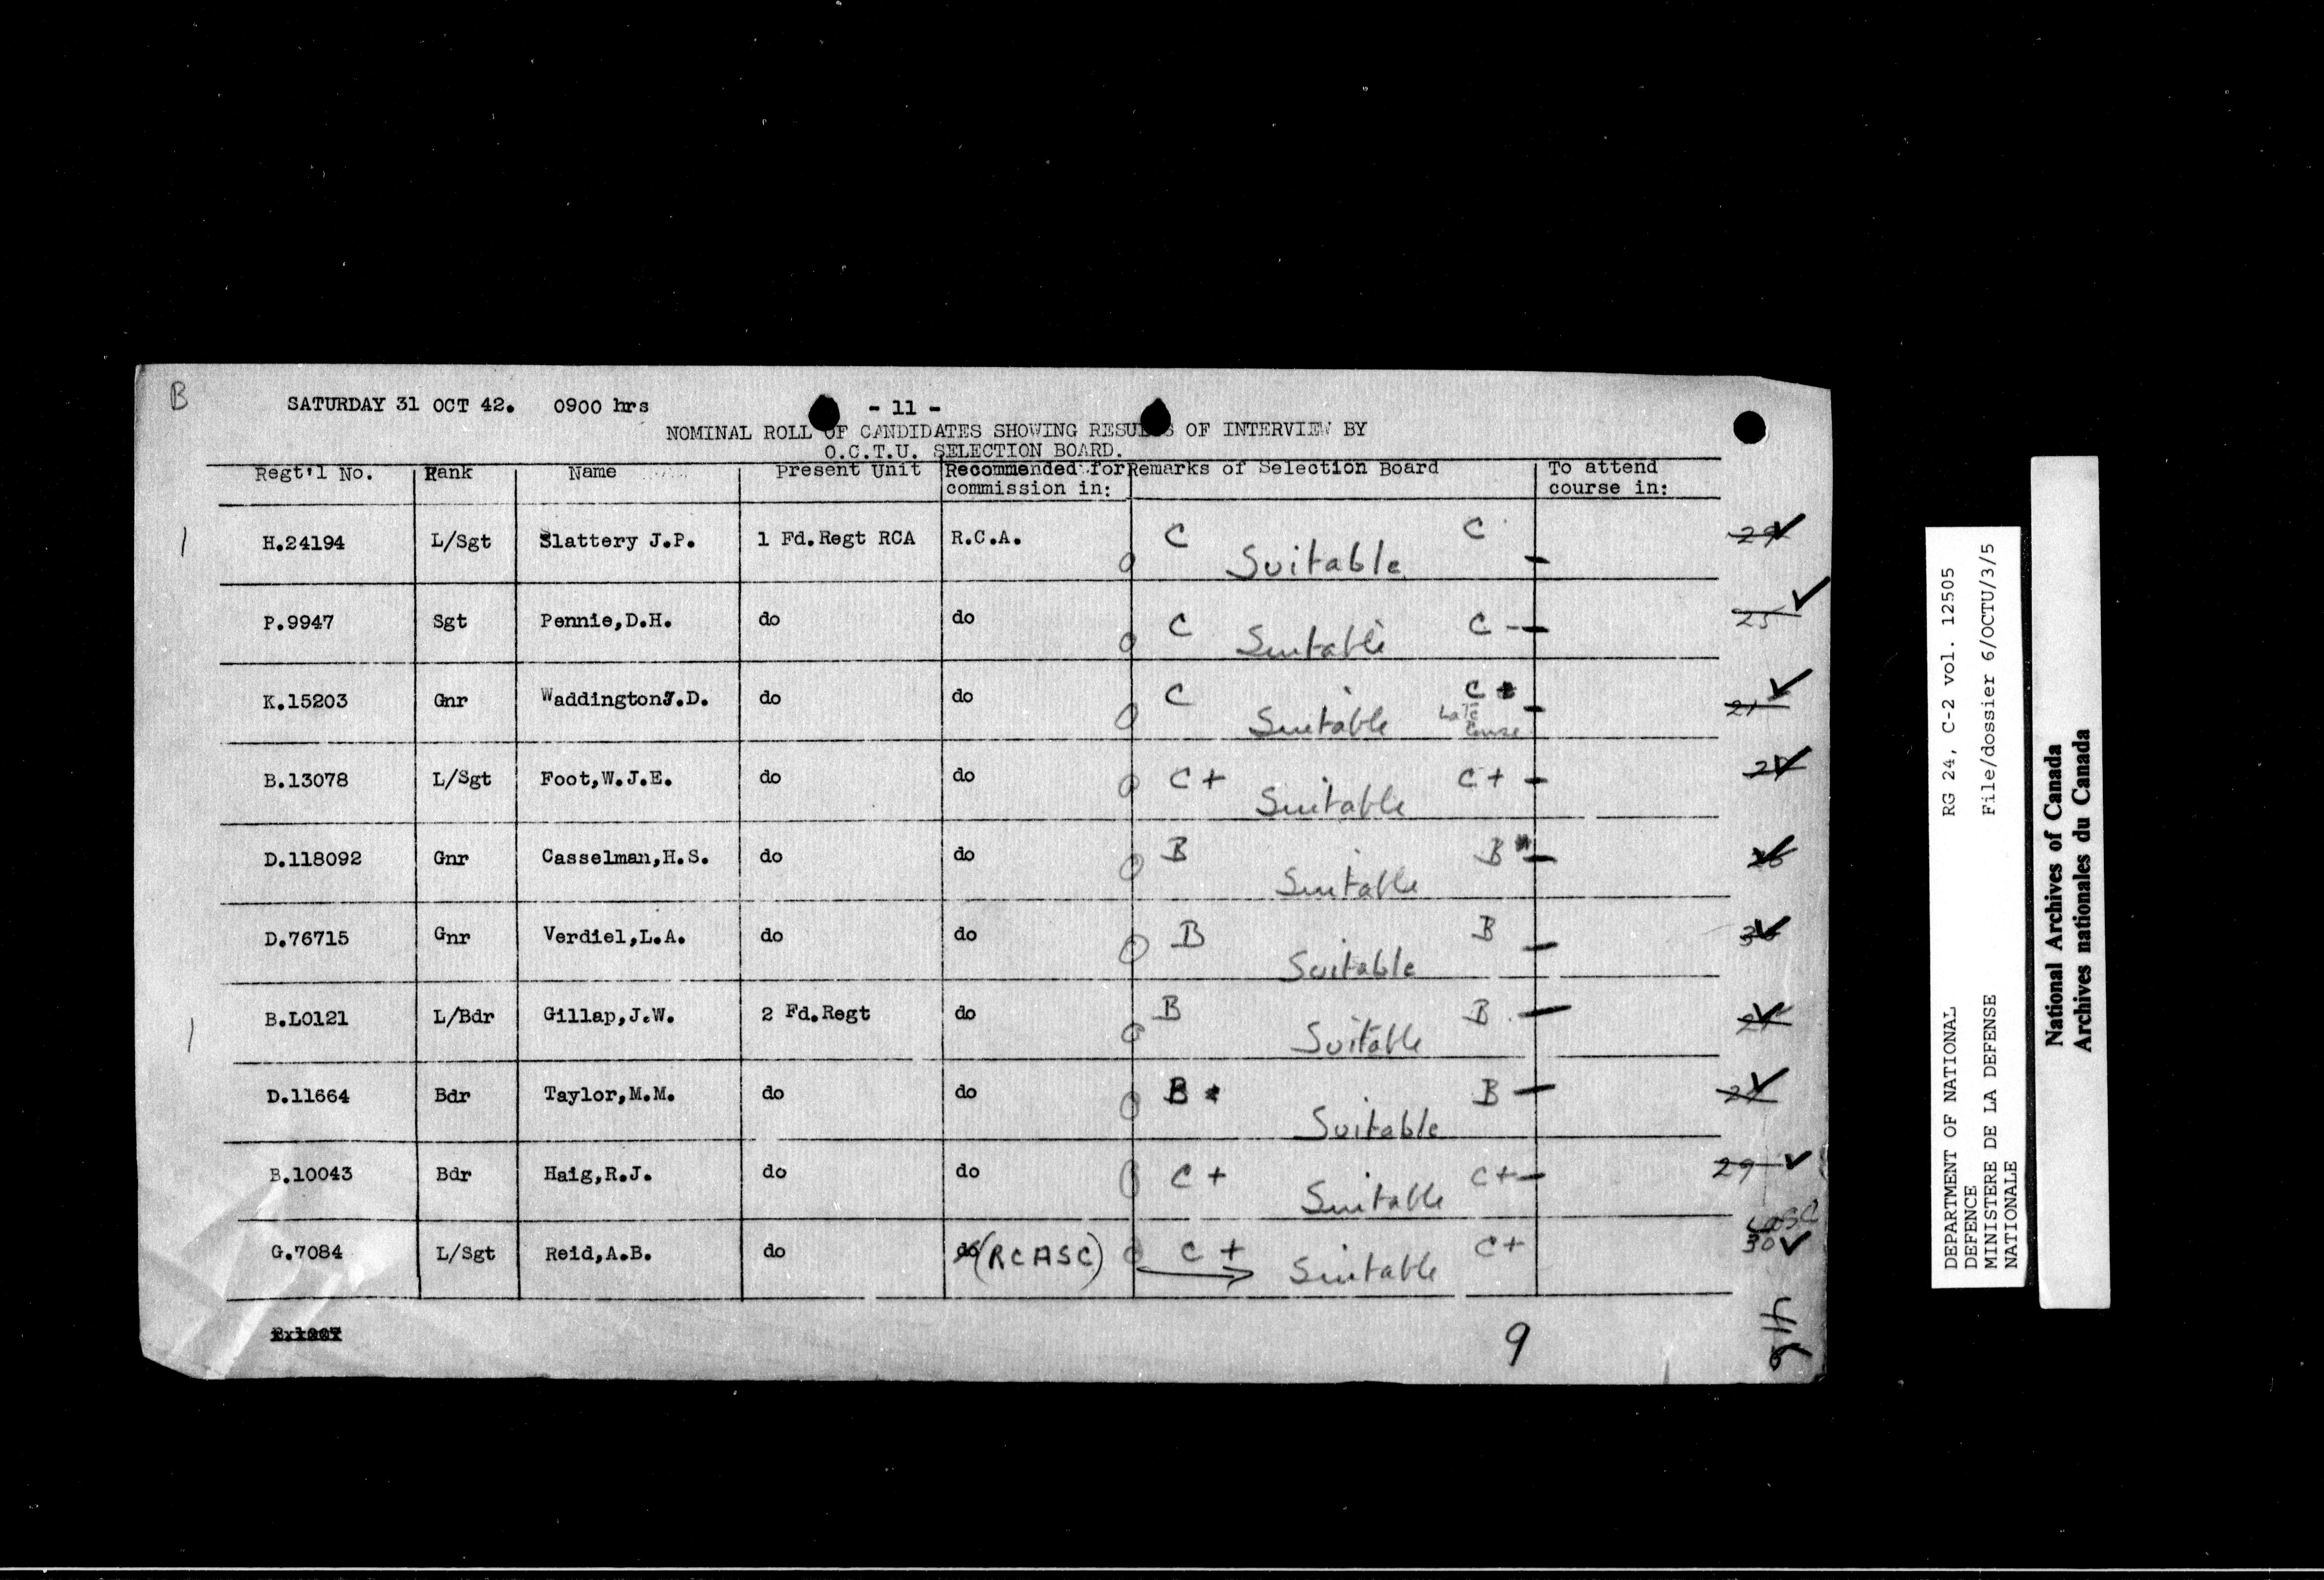 B
SATURDAY 31 OCT 42. 0900 hrs - 11 -
NOMINAL ROLL OF CANDIDATES SHOWING RESULTS OF INTERVIEW BY
O.C.T.U. SELECTION BOARD.
Regt'l No. Rank Name Present Unit Recommended for commission in: Remarks of Selection Board To attend course in:
H.24194 L/Sgt Slattery J.P. 1 Fd.Regt RCA R.C.A. C Suitable C 29
P.9947 Sgt Pennie,D.H. do do C Suitable C - 25
K.15203 Gnr WaddingtonJ.D. do do C Suitable C Late Course 21
B.13078 L/Sgt Foot,W.J.E. do do C+ Suitable C+
D.118092 Gnr Casselman,H.S. do do B Suitable B
D.76715 Gnr Verdiel,L.A. do do B Suitable B
B.L0121 L/Bdr Gillap,J.W. 2 Fd.Regt do B Suitable B
D.11664 Bdr Taylor,M.M. do do B Suitable B
B.10043 Bdr Haig,R.J. do do C+ Suitable C+ 29
G.7084 L/Sgt Reid,A.B. do do (RCASC) C+ Suitable C+ 30
9
RG 24, C-2 vol. 12505
File/dossier 6/OCTU/3/5
DEPARTMENT OF NATIONAL
DEFENCE
MINISTERE DE LA DEFENSE
NATIONALE
National Archives of Canada
Archives nationales du Canada